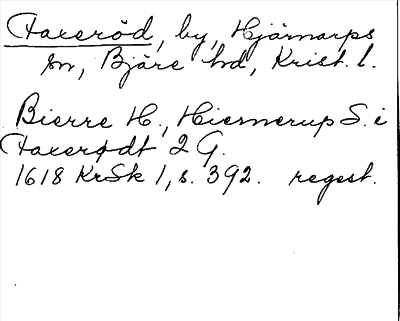 Faxeröd, by, Hjärnarps
sn, Bjäre hd, Krist. l.
Bierre H., Hiernerup S. i
Faxerødt 2 G.
1618 KrSk 1, s. 392. regest.